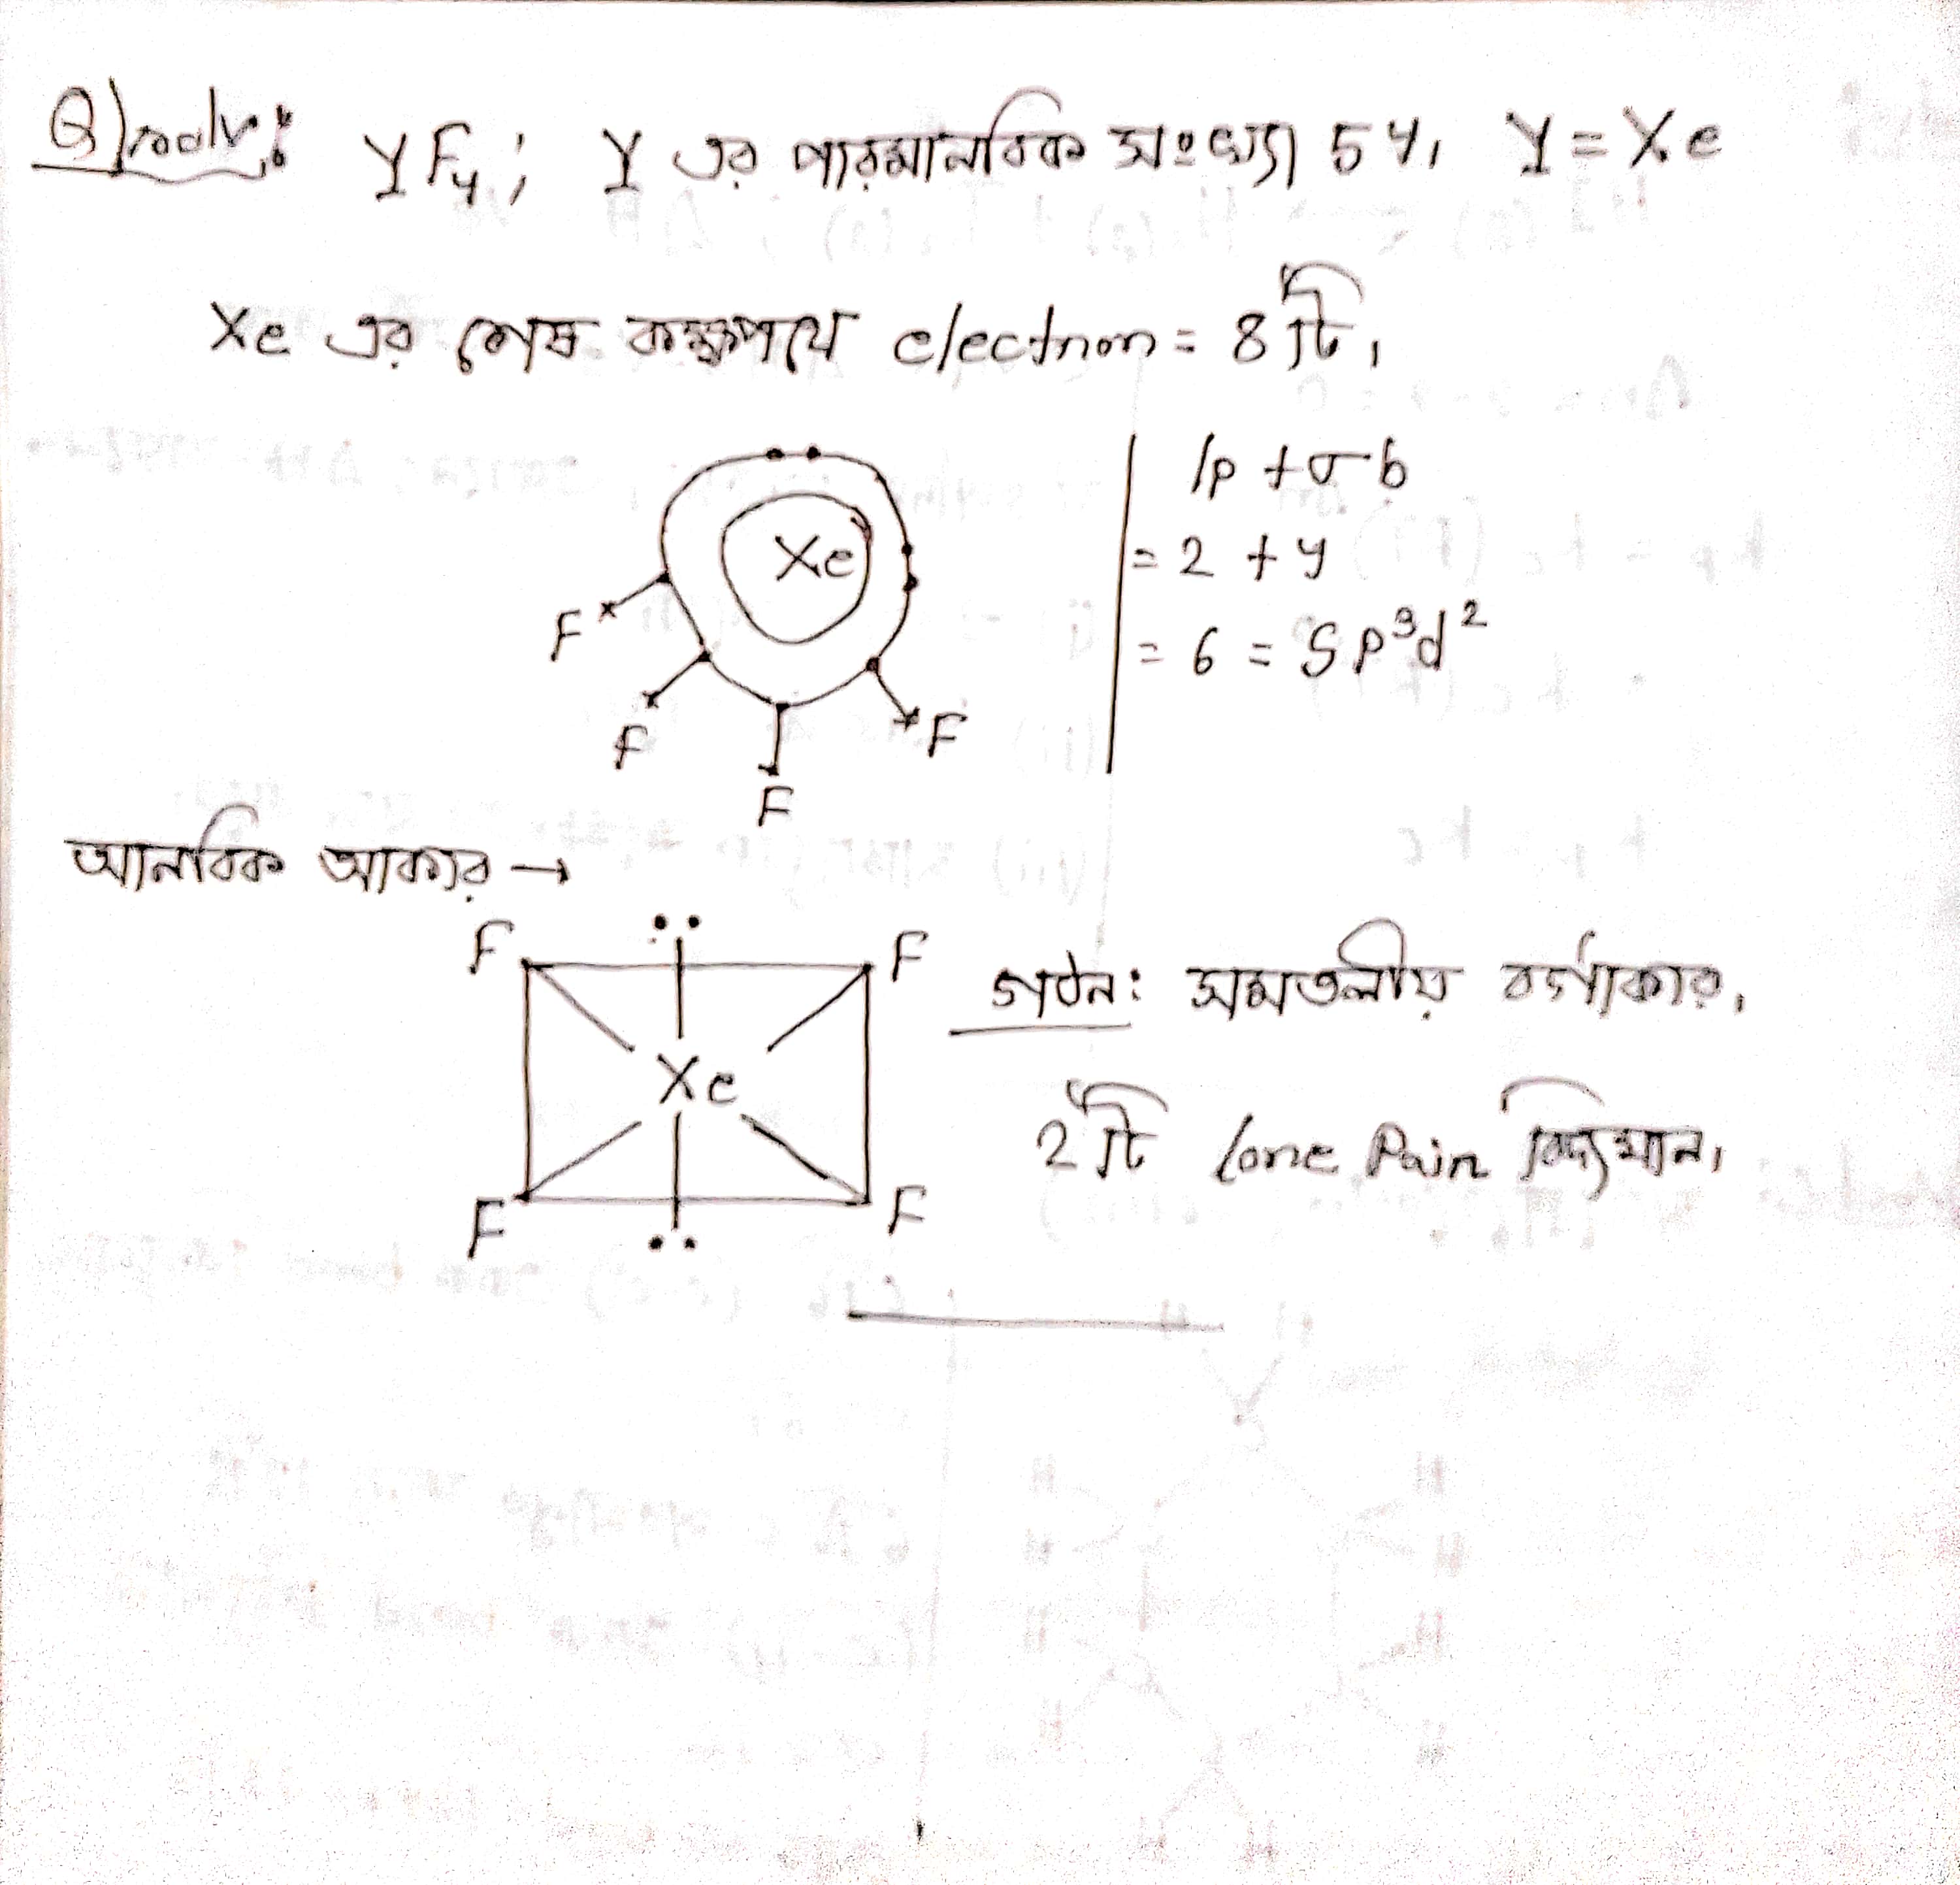 Q) solv: YF₄; Y এর পারমানবিক সংখ্যা 54, Y = Xe
Xe এর শেষ কক্ষপথে electron = 8টি,
Xe
F
F
F
F
lp + σb
= 2 + 4
= 6 = Sp³d²
আনবিক আকার →
F
F
Xe
F
F
গঠন: সমতলীয় বর্গাকার,
2টি lone Pair বিদ্যমান,